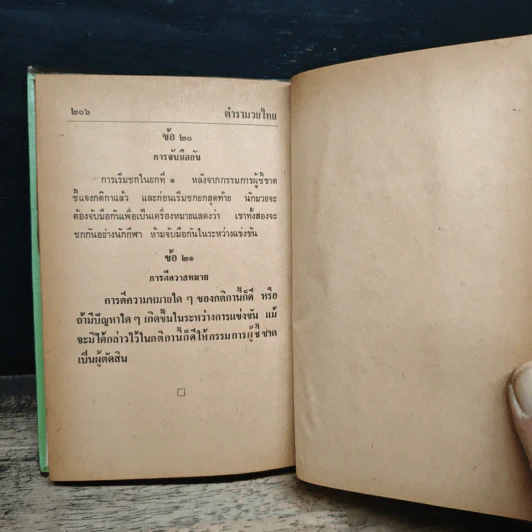 ๒๑๖ ตำรามวยไทย
ข้อ ๒๐
การจับมือกัน
การเริ่มชกในยกที่ ๑ หลังจากกรรมการผู้ชี้ขาด
ชี้แจงกติกาแล้ว และก่อนเริ่มชกยกสุดท้าย นักมวยจะ
ต้องจับมือกันเพื่อเป็นเครื่องหมายแสดงว่า เขาทั้งสองจะ
ชกกันอย่างนักกีฬา ห้ามจับมือกันในระหว่างแข่งขัน
ข้อ ๒๑
การตีความหมาย
การตีความหมายใด ๆ ของกติกานี้ก็ดี หรือ
ถ้ามีปัญหาใด ๆ เกิดขึ้นในระหว่างการแข่งขัน แม้
จะมิได้กล่าวไว้ในกติกานี้ก็ดีให้กรรมการผู้ชี้ขาด
เป็นผู้ตัดสิน